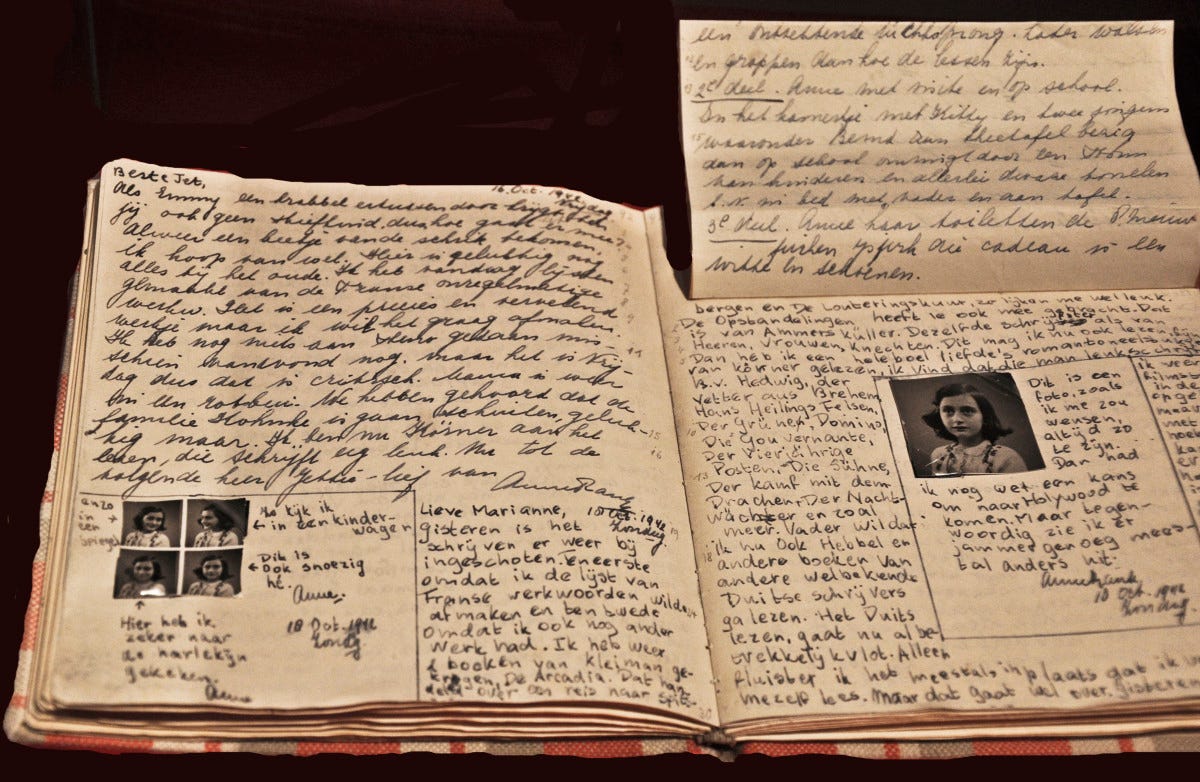 Beste Jet,
16. Oct. 1942
Als Emmy een krabbel ertussen door krijgt, dan
jij ook geen stiefkind, dus hoe gaat er mee?
Alweer een beetje van de schrik bekomen,
ik hoop van wel. Hier is gelukkig nog
alles bij het oude. Ik heb vandaag lijsten
gemaakt van de Franse onregelmatige
werkw. Het is een precies en vervelend
werkje maar ik wil het graag afmaken.
Ik heb nog niets aan steno gedaan mis-
schien vanavond nog. maar het is Vrij-
dag dus dat is critisch. Mama is weer
in een robbui. We hebben gehoord dat de
familie is gaan schuilen, geluk-
kig maar. Ik ben nu Körner aan het
lezen, die schrijft erg leuk. Nu tot de
volgende keer Jettie-lief van
Anne Frank
anzo
in
een
spiegel
Zo kijk ik
in een kinder-
wagen
Dit is
ook snoezig
hè.
Anne.
18 Oct. 1942
Zondag
Hier heb ik
zeker naar
een harlekijn
gekeken.
Anne
Lieve Marianne,
18 Oct. 1942
Zondag.
gisteren is het
schrijven er weer bij
ingeschoten. Eneerste
omdat ik de lijst van
Franse werkwoorden wilde
afmaken en ten twede
omdat ik ook nog ander
werk had. Ik heb weer
2 boeken van kleiman ge-
kregen, De Arcadia. Dat han-
deld over een reis naar Spits-
een ontzettende luchtsprong. Later walsen
en grappen aan hoe de lessen zijn.
2e deel. Anne met visite en op school.
In het kamertje met Kitty en twee jongens
waaronder Bernd aan theetafel bezig
dan op school omringd door een
van kinderen en allerlei dwaze tonelen
b.v. in bed met vader en aan tafel.
3e deel. Anne haar toiletten de nieuwe
jurken 1 jurk die cadeau is een
witte en schoenen.
bergen en De Louteringskuur, zo lijken me wel leuk.
De Opstandelingen heeft ie ook mee gebracht. Dat
is van Ammers-Küller. Dezelfde schrijfster
Heeren, vrouwen, knechten. Dit mag ik nu ook lezen, fijn
Dan heb ik een heleboel liefde's romantoneels
van körner gelezen, ik vind dat die man leuk schrijft
B.v. Hedwig, der
Vetter aus Brehem,
Hans Heilings Felsen,
Der Grünen, Domino,
Die Gouvernante,
Der Vierjährige
Posten, Die Sühne,
Der kamf mit dem
Drachen, Der Nacht-
wächter en zoal
meer. Vader wil dat
ik nu ook Hebbel en
andere boeken van
andere welbekende
Duitse schrijvers
ga lezen. Het Duits
lezen, gaat nu al be-
trekkelijk vlot. Alleen
fluister ik het meestal inplaats dat ik in
mezelf lees. Maar dat gaat wel over. Gisteren
Dit is een
foto, zoals
ik me zou
wensen,
altijd zo
te zijn.
Dan had
ik nog wel een kans
om naar Holywood te
komen. Maar tegen-
woordig zie ik er
jammer genoeg mees-
tal anders uit.
Annefrank
18 Oct. 1942
Zondag